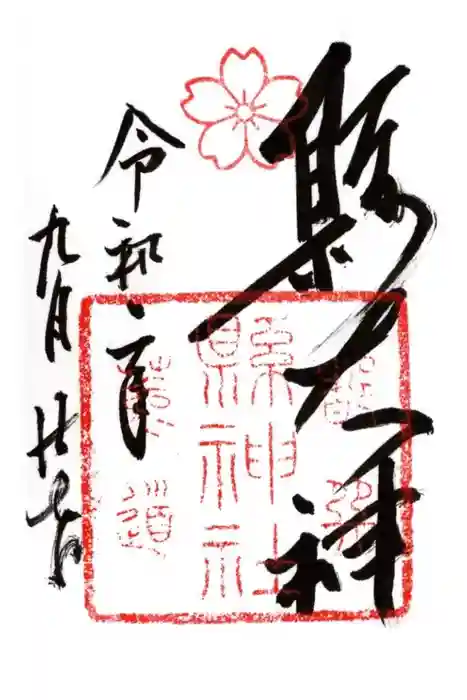 縣大神
令和二年
九月廿七日
縣神社